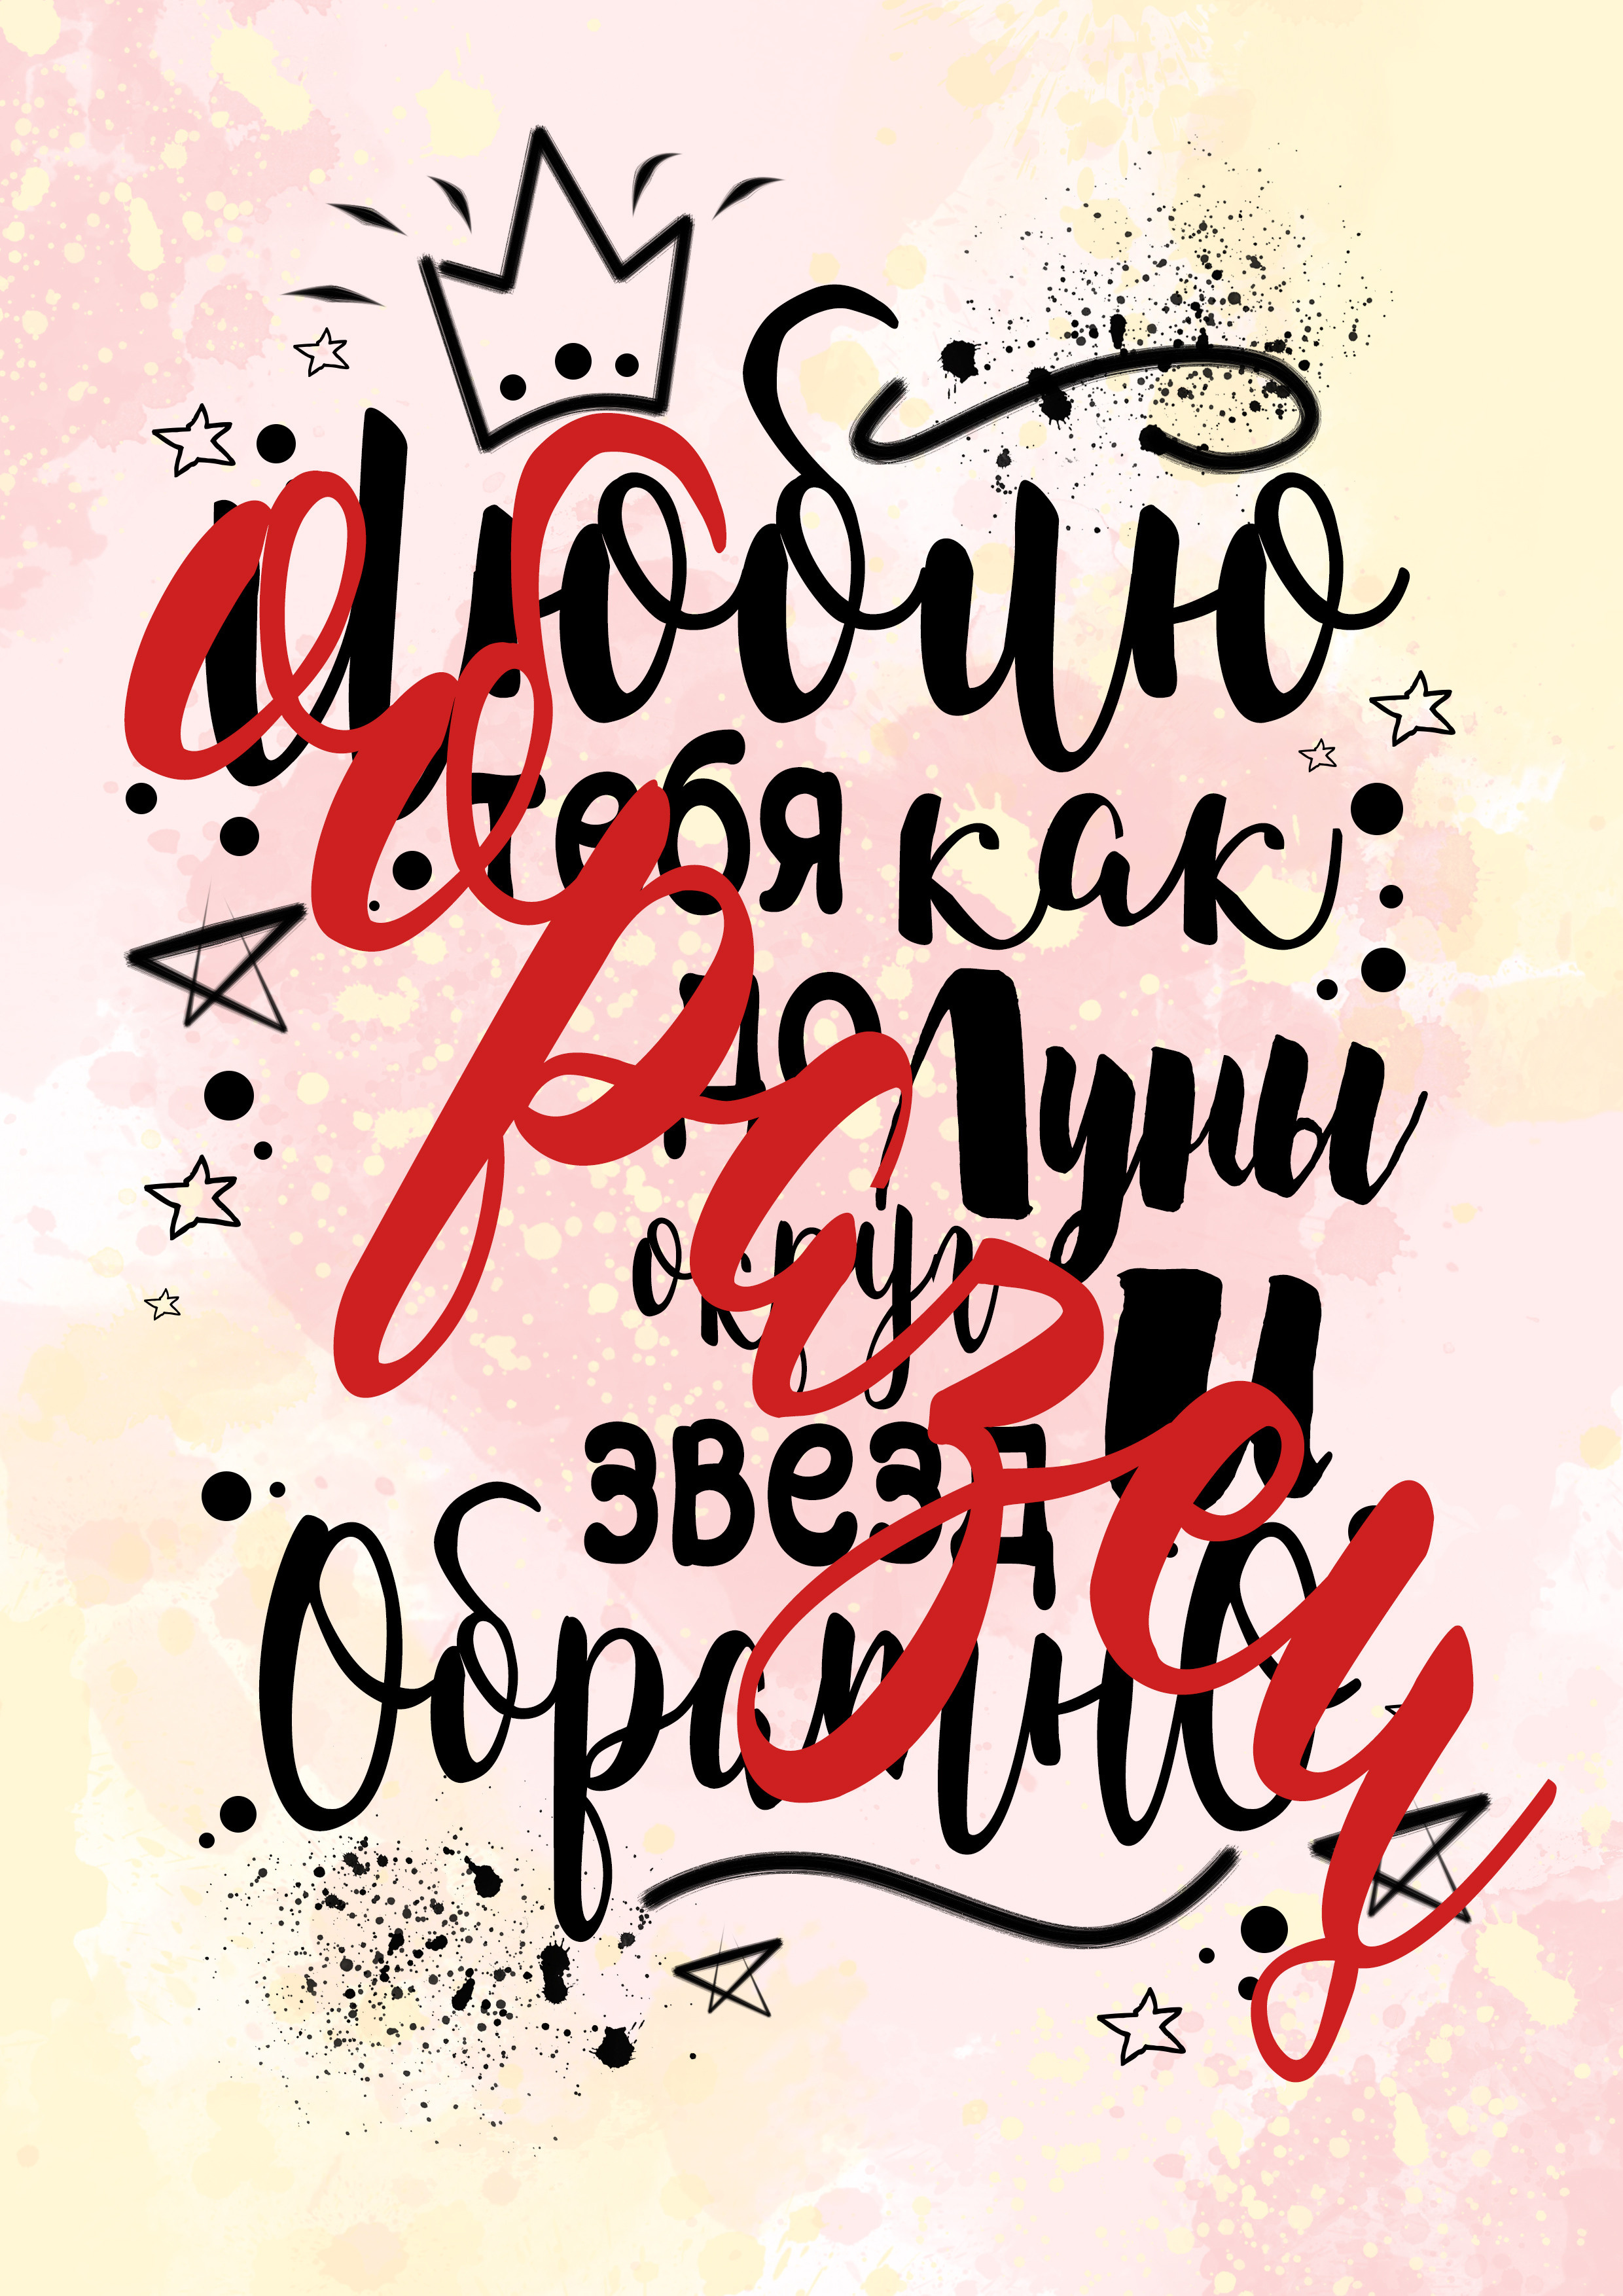 Люблю
тебя как
до Луны
округ
звезд И
Обратно
образец